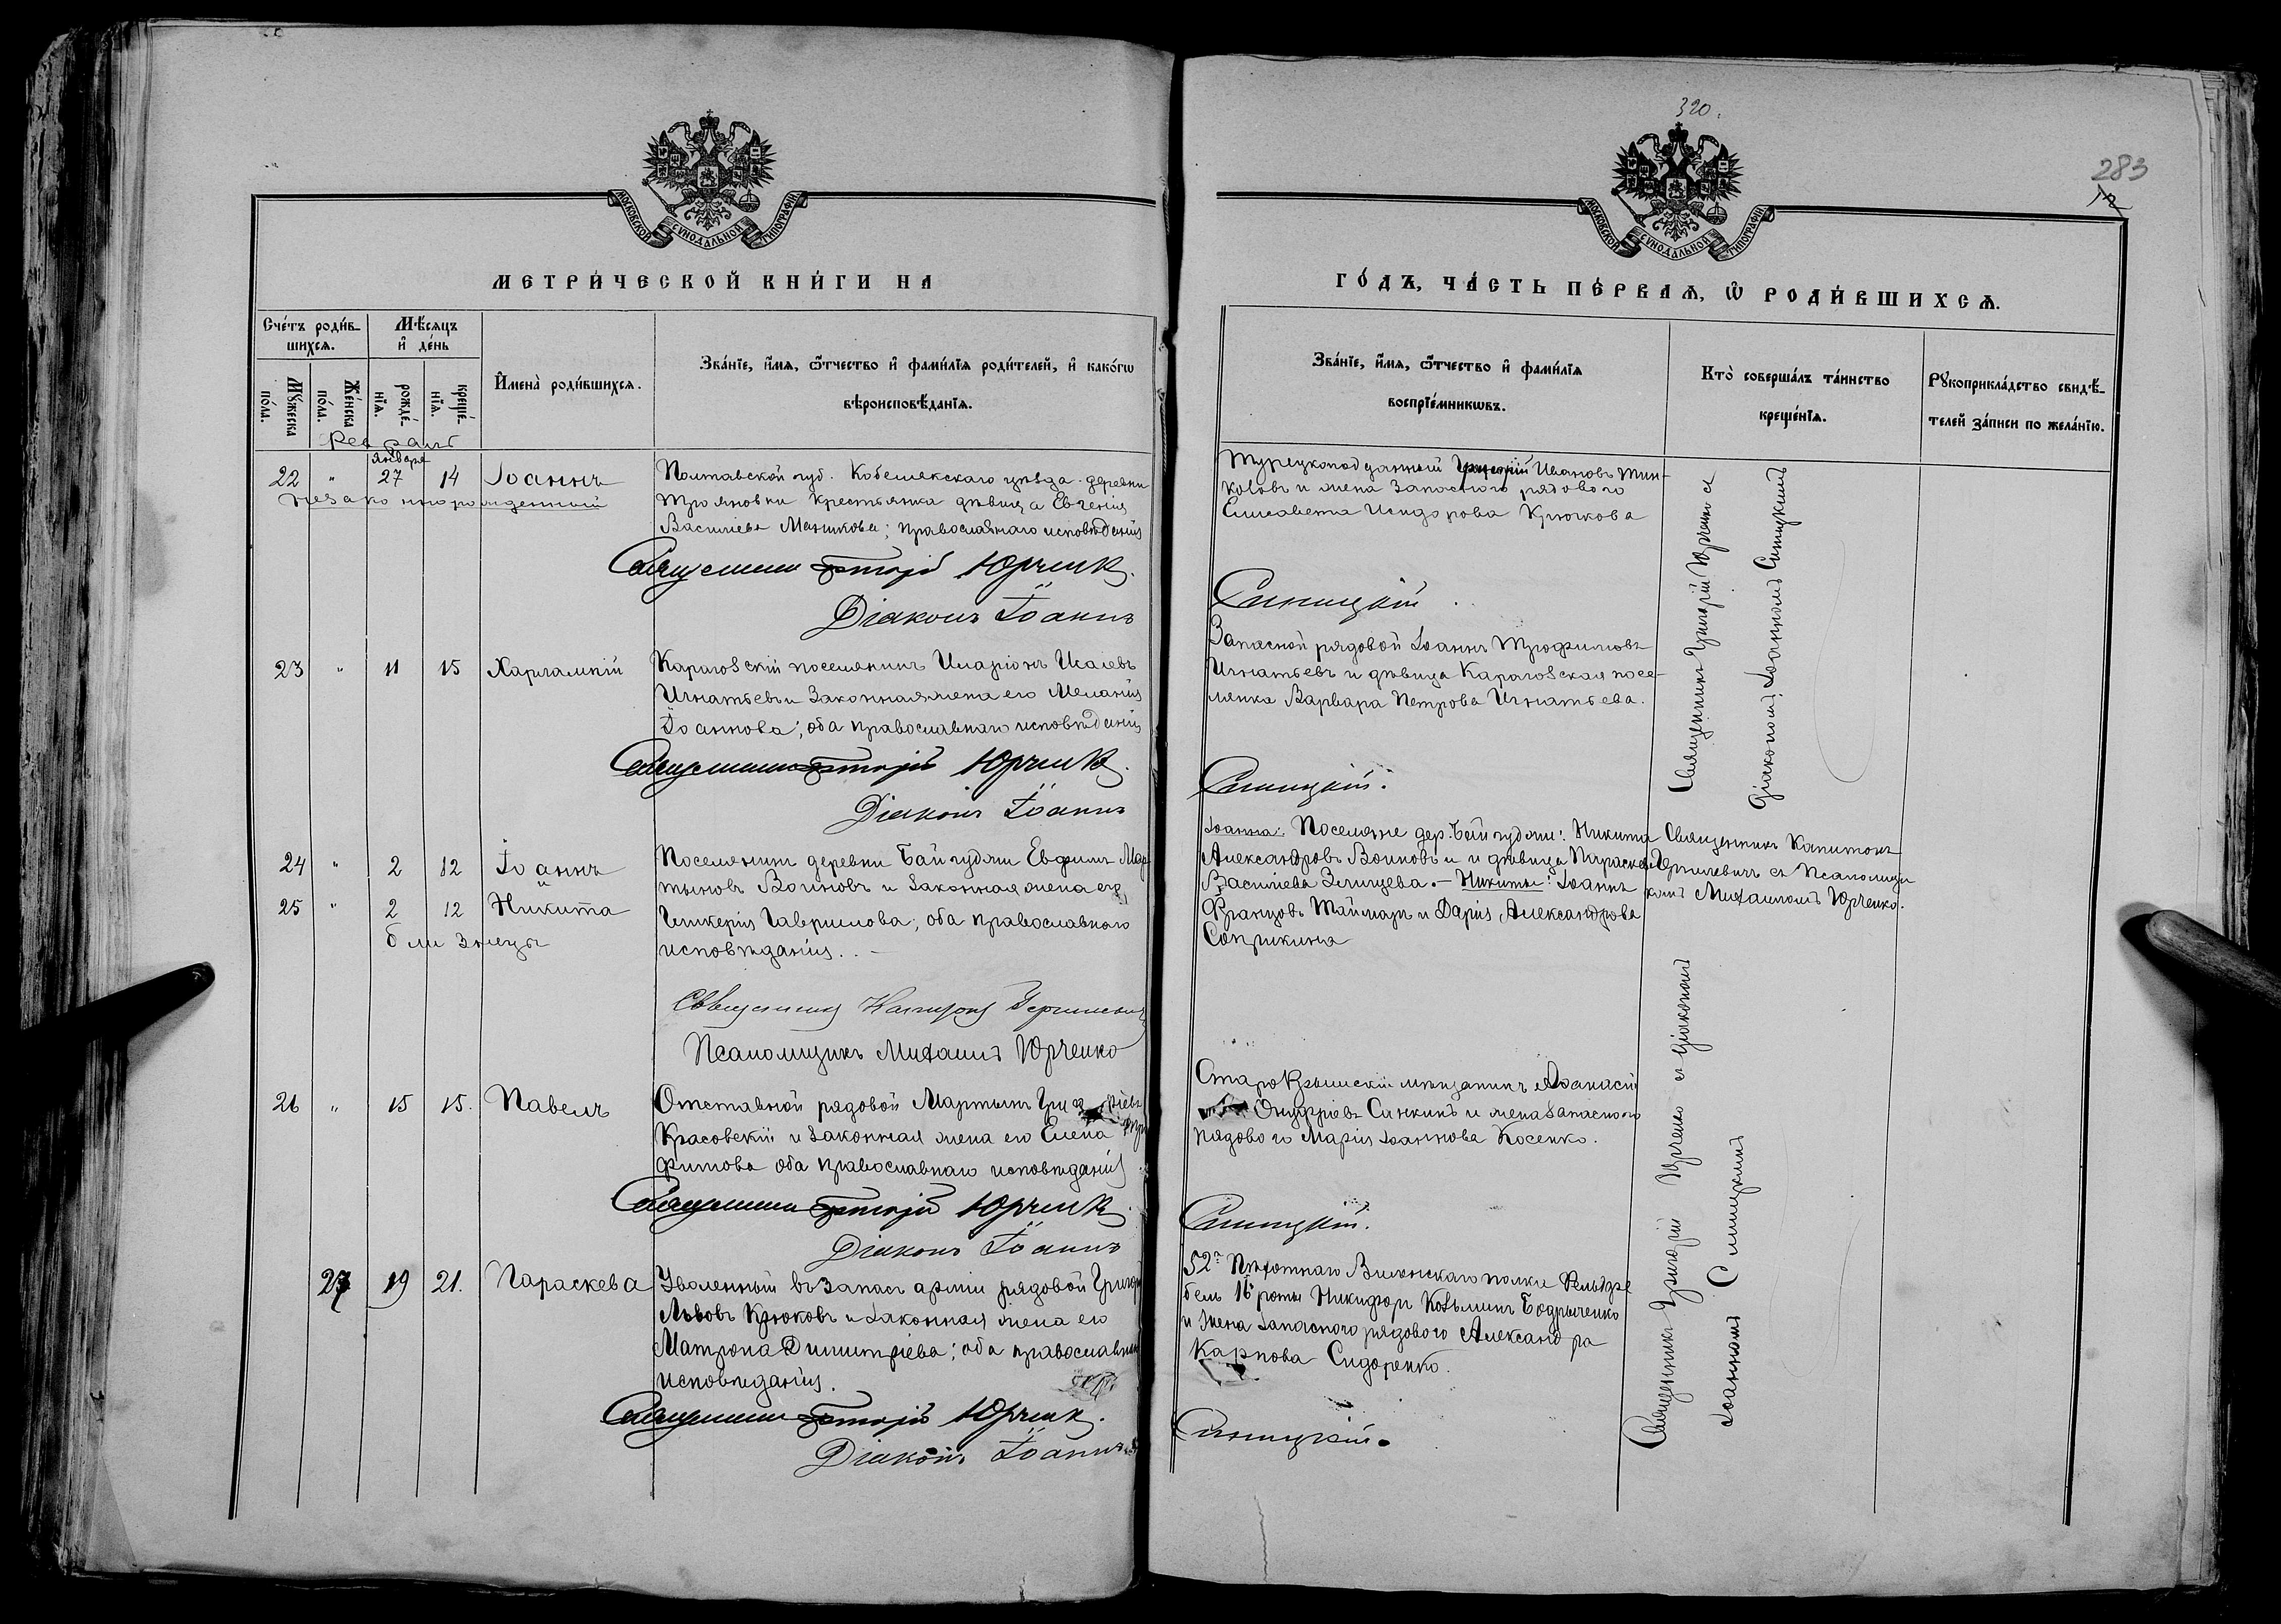 320.
283
МОСКОВСКОЙ СѴНОДАЛЬНОЙ ТИПОГРАФІИ
МОСКОВСКОЙ СѴНОДАЛЬНОЙ ТИПОГРАФІИ
МЕТРИ́ЧЕСКОЙ КНИ́ГИ НА
ГО́ДЪ, ЧА́СТЬ ПЕ́РВАѦ, Ѡ҆ РОДИ́ВШИХСѦ.
Сче́тъ роди́в-
шихсѧ.
Мѣ́сѧцъ
и҆ де́нь
Мꙋ́жеска
по́ла.
Же́нска
по́ла.
рожде́-
нїѧ.
креще́-
нїѧ.
И҆мена̀ роди́вшихсѧ.
Зва́нїе, и҆́мѧ, ѻ҆́тчество и҆ фами́лїѧ роди́телей, и҆ како́гѡ
вѣроисповѣ́данїѧ.
Зва́нїе, и҆́мѧ, ѻ҆́тчество и҆ фами́лїѧ
воспрїе́мникѡвъ.
Кто̀ соверша́лъ та́инство
креще́нїѧ.
Рꙋкоприкла́дство свидѣ́-
телей за́писи по жела́нїю.
Февраль
Января
22 " 27 14 Іоаннъ
незаконнорожденный
Полтавской губ. Кобелякскаго уѣзда деревни
Трояновки крестьянка дѣвица Евгенія
Василіева Маникова; православнаго исповѣданія
Священникъ Григорій Юрченко.
Діаконъ Іоаннъ
Турецкоподданный Григорій Ивановъ Мин-
ковъ и жена запаснаго рядового
Елисавета Исидорова Крюкова
Синицкій.
Священникъ Григорій Юрченко съ
діакономъ Іоанномъ Синицкимъ
23 " 11 15 Харлампій
Карагозскій поселянинъ Иларіонъ Исаевъ
Игнатьевъ и законная жена его Меланія
Іоаннова; оба православнаго исповѣданія
Священникъ Григорій Юрченко.
Діаконъ Іоаннъ
Запасной рядовой Іоаннъ Трофимовъ
Игнатьевъ и дѣвица Карагозская посе-
лянка Варвара Петрова Игнатьева.
Синицкій.
24 " 2 12 Іоаннъ
и
25 " 2 12 Никита
близнецы
Поселянинъ деревни Байгуджи Евфимъ Мар-
тыновъ Воиновъ и законная жена его
Гликерія Гаврилова; оба православнаго
исповѣданія. . –
Священникъ Капитонъ
Псаломщикъ Михаилъ Юрченко
Іоанна: Поселяне дер. Байгуджи: Никита
Александровъ Воиновъ и дѣвица Параскева
Василіева – Никиты: Іоаннъ
Францовъ Таймаръ и Дарія Александрова
Сопрыкина
Священникъ Капитонъ
съ Псаломщи-
комъ Михаиломъ Юрченко.
26 " 15 15. Павелъ
Отставной рядовой Мартынъ
Красовскій и законная жена его Елена
Фимова оба православнаго исповѣданія
Священникъ Григорій Юрченко.
Діаконъ Іоаннъ
СтароКрымскій мѣщанинъ Аѳанасій
Онуфріевъ Синкинъ и жена запаснаго
рядового Марія Іоаннова Косенко.
Синицкій.
Священникъ Григорій Юрченко съ діакономъ
Іоанномъ Синицкимъ
27 19 21. Параскева
Уволенный въ запасъ арміи рядовой Григорій
Львовъ Крюковъ и законная жена его
Матрона Димитріева; оба православнаго
исповѣданія.
Священникъ Григорій Юрченко.
Діаконъ Іоаннъ
52го Пѣхотнаго Виленскаго полка Фельдфе-
бель 16 роты Никифоръ Козьминъ Бодрыченко
и жена запаснаго рядового Александра
Карпова Сидоренко.
Синицкій.